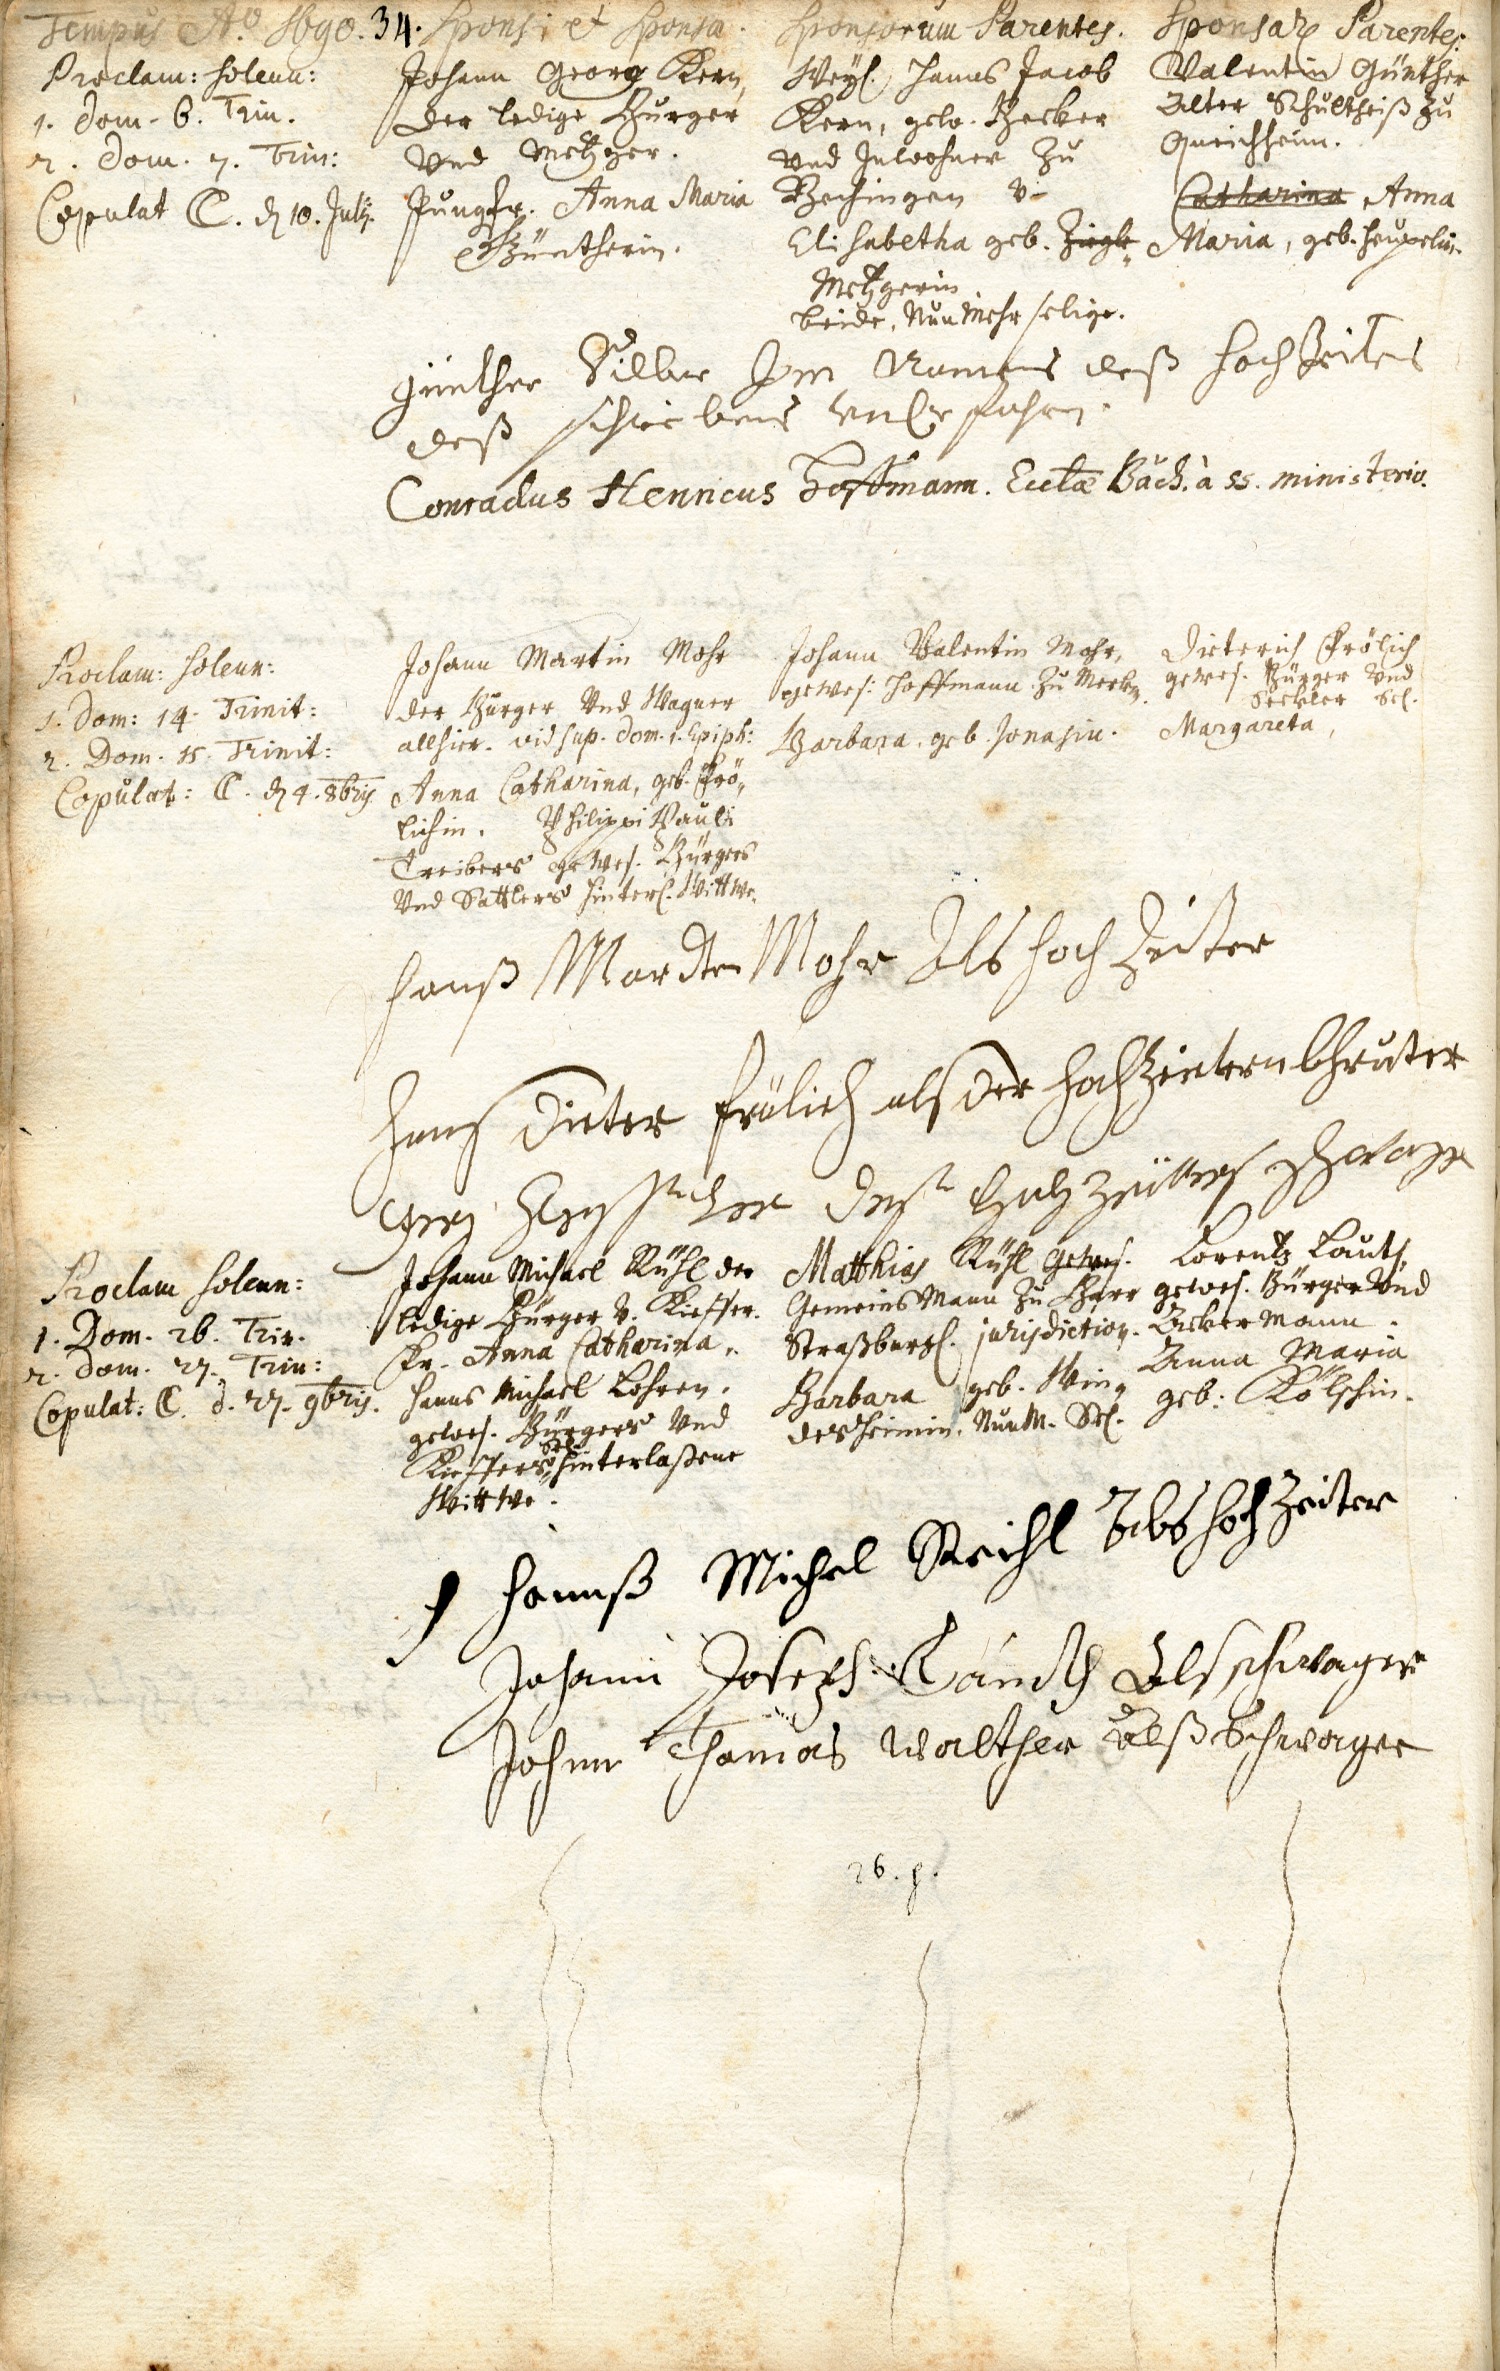 Tempus Aº 1690.
34.
Sponsi et Sponsa.
Sponsorum Parentes.
Sponsar Parentes:
Proclam: solenn:
1. Dom. 6. Trin.
2. Dom. 7. Trin:
Copulat C. d 10. Julÿ.
Johann Georg Kern,
der ledige Burger
Vnd Metzger.
Jungfr. Anna Maria
Güntherin.
Weyl. Hanns Jacob
Kern, gew. Becker
vnd Inwohner Zu
Bechingen v.
Elisabetha geb. Ziegle
Metzgerin
beide, Nun Mehr selige.
Valentin Günther
Alter Schultheiß zu
Queichheim.
Catharina Anna
Maria, geb.
Günther Namens deß Hochzeiters
deß schreibens
Conradus Henricus Hoffmann. Ecclæ Bach. à ss. ministerio.
Proclam: solenn:
1. Dom: 14. Trinit:
2. Dom. 15. Trinit:
Copulat: C. d 4. 8bris
Johann Martin Mohr
der Burger Vnd Wagner
allhier. vid sup. dom. 1. Epiph:
Anna Catharina, geb. Frö,,
lichin. Philippi Pauli
Treibers gewes. Bürgers
Vnd Sattlers hinterl. Wittwe.
Johann Valentin Mohr,
gewes: Hoffmann Zu
Barbara, geb. Jonasin.
Dieterich Frölich
gewes. Bürger Vnd
Seckler Sel.
Margareta,
Hanß Mardten Mohr Als Hoch Zeiter
Hans Dieter Frölich als der Hochzeitern bruter
deß Hochzeitters schwager
Proclam solenn:
1. Dom. 26. Trin.
2. Dom. 27. Trin:
Copulat: C. d. 27. 9bris.
Johann Michael Rühl der
ledige Bürger v. Kieffer.
Fr. Anna Catharina,
Hanns Michael Lohren.
gewes. Bürgers Vnd
Kieffers Sel. hinterlaßene
Wittwe.
Matthias Rühl gewes.
Gemeins Mann Zu Barr
Straßburgl. jurisdiction.
Barbara geb. Win,,
desheimin. NunM. Sel.
Lorentz Lauth
gewes. Bürger Vnd
Ackermann.
Anna Maria
geb: Kölschin.
Hannß Michel Reihl Als Hoch Zeiter
Johann Joseph Lauth Als schwager
Johann Thomas Walther Alß Schwager
26. p.